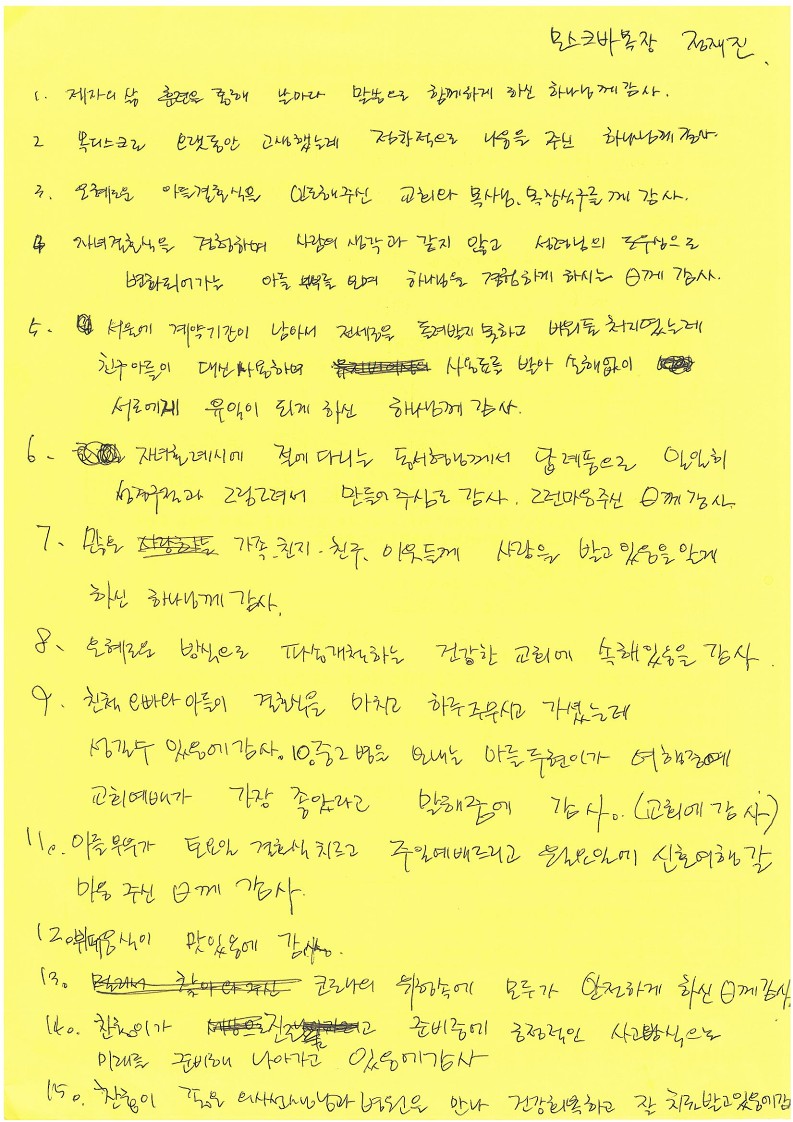 모스크바목장 정재진.
1. 제자의 삶 훈련을 통해 날마다 말씀으로 함께하게 하신 하나님께 감사.
2 목디스크로 오랫동안 고생했는데 점화적으로 나음을 주신 하나님께 감사.
3. 은혜로운 아들결혼식을 인도해주신 교회와 목사님, 목장식구들께 감사.
4 자녀결혼식을 경험하며 사람의 생각과 같지 않고 성령님의 도우심으로
변화되어가는 아들 부부를 보며 하나님을 경험하게 하시는 하께 감사.
5. 서울에 계약기간이 남아서 전세금을 돌려받지 못하고 바뀌들 처지였는데
친구아들이 대신 사용하며 사용료를 받아 손해없이
서로에게 유익이 되게 하신 하나님께 감사.
6. 자녀혼례시에 절에 다니는 동서형님께서 답례품으로 일일히
성경구절과 그림그려서 만들어주심도 감사. 그런마음주신 하께 감사.
7. 많은 가족.친지.친구. 이웃들께 사랑을 받고 있음을 알게
하신 하나님께 감사.
8. 은혜로운 방식으로 파송개척하는 건강한 교회에 속해있음을 감사.
9. 친척 오빠와 아들이 결혼식을 마치고 하루주무시고 가셨는데
섬길수 있음에 감사. 10. 중2병을 보내는 아들 두현이가 여행중에
교회예배가 가장 좋았다고 말해줌에 감사. (교회에 감사)
11. 아들부부가 토요일 결혼식 치르고 주일예배드리고 월요일에 신혼여행 갈
마음 주신 하께 감사.
12. 뷔페음식이 맛있음에 감사.
13. 코로나의 위험속에 모두가 안전하게 하신 하께 감사.
14. 찬협이가 준비중에 긍정적인 사고방식으로
미래를 준비해 나아가고 있음에 감사
15. 찬협이 좋은 의사선생님과 병원을 만나 건강회복하고 잘 치료받고있음에감